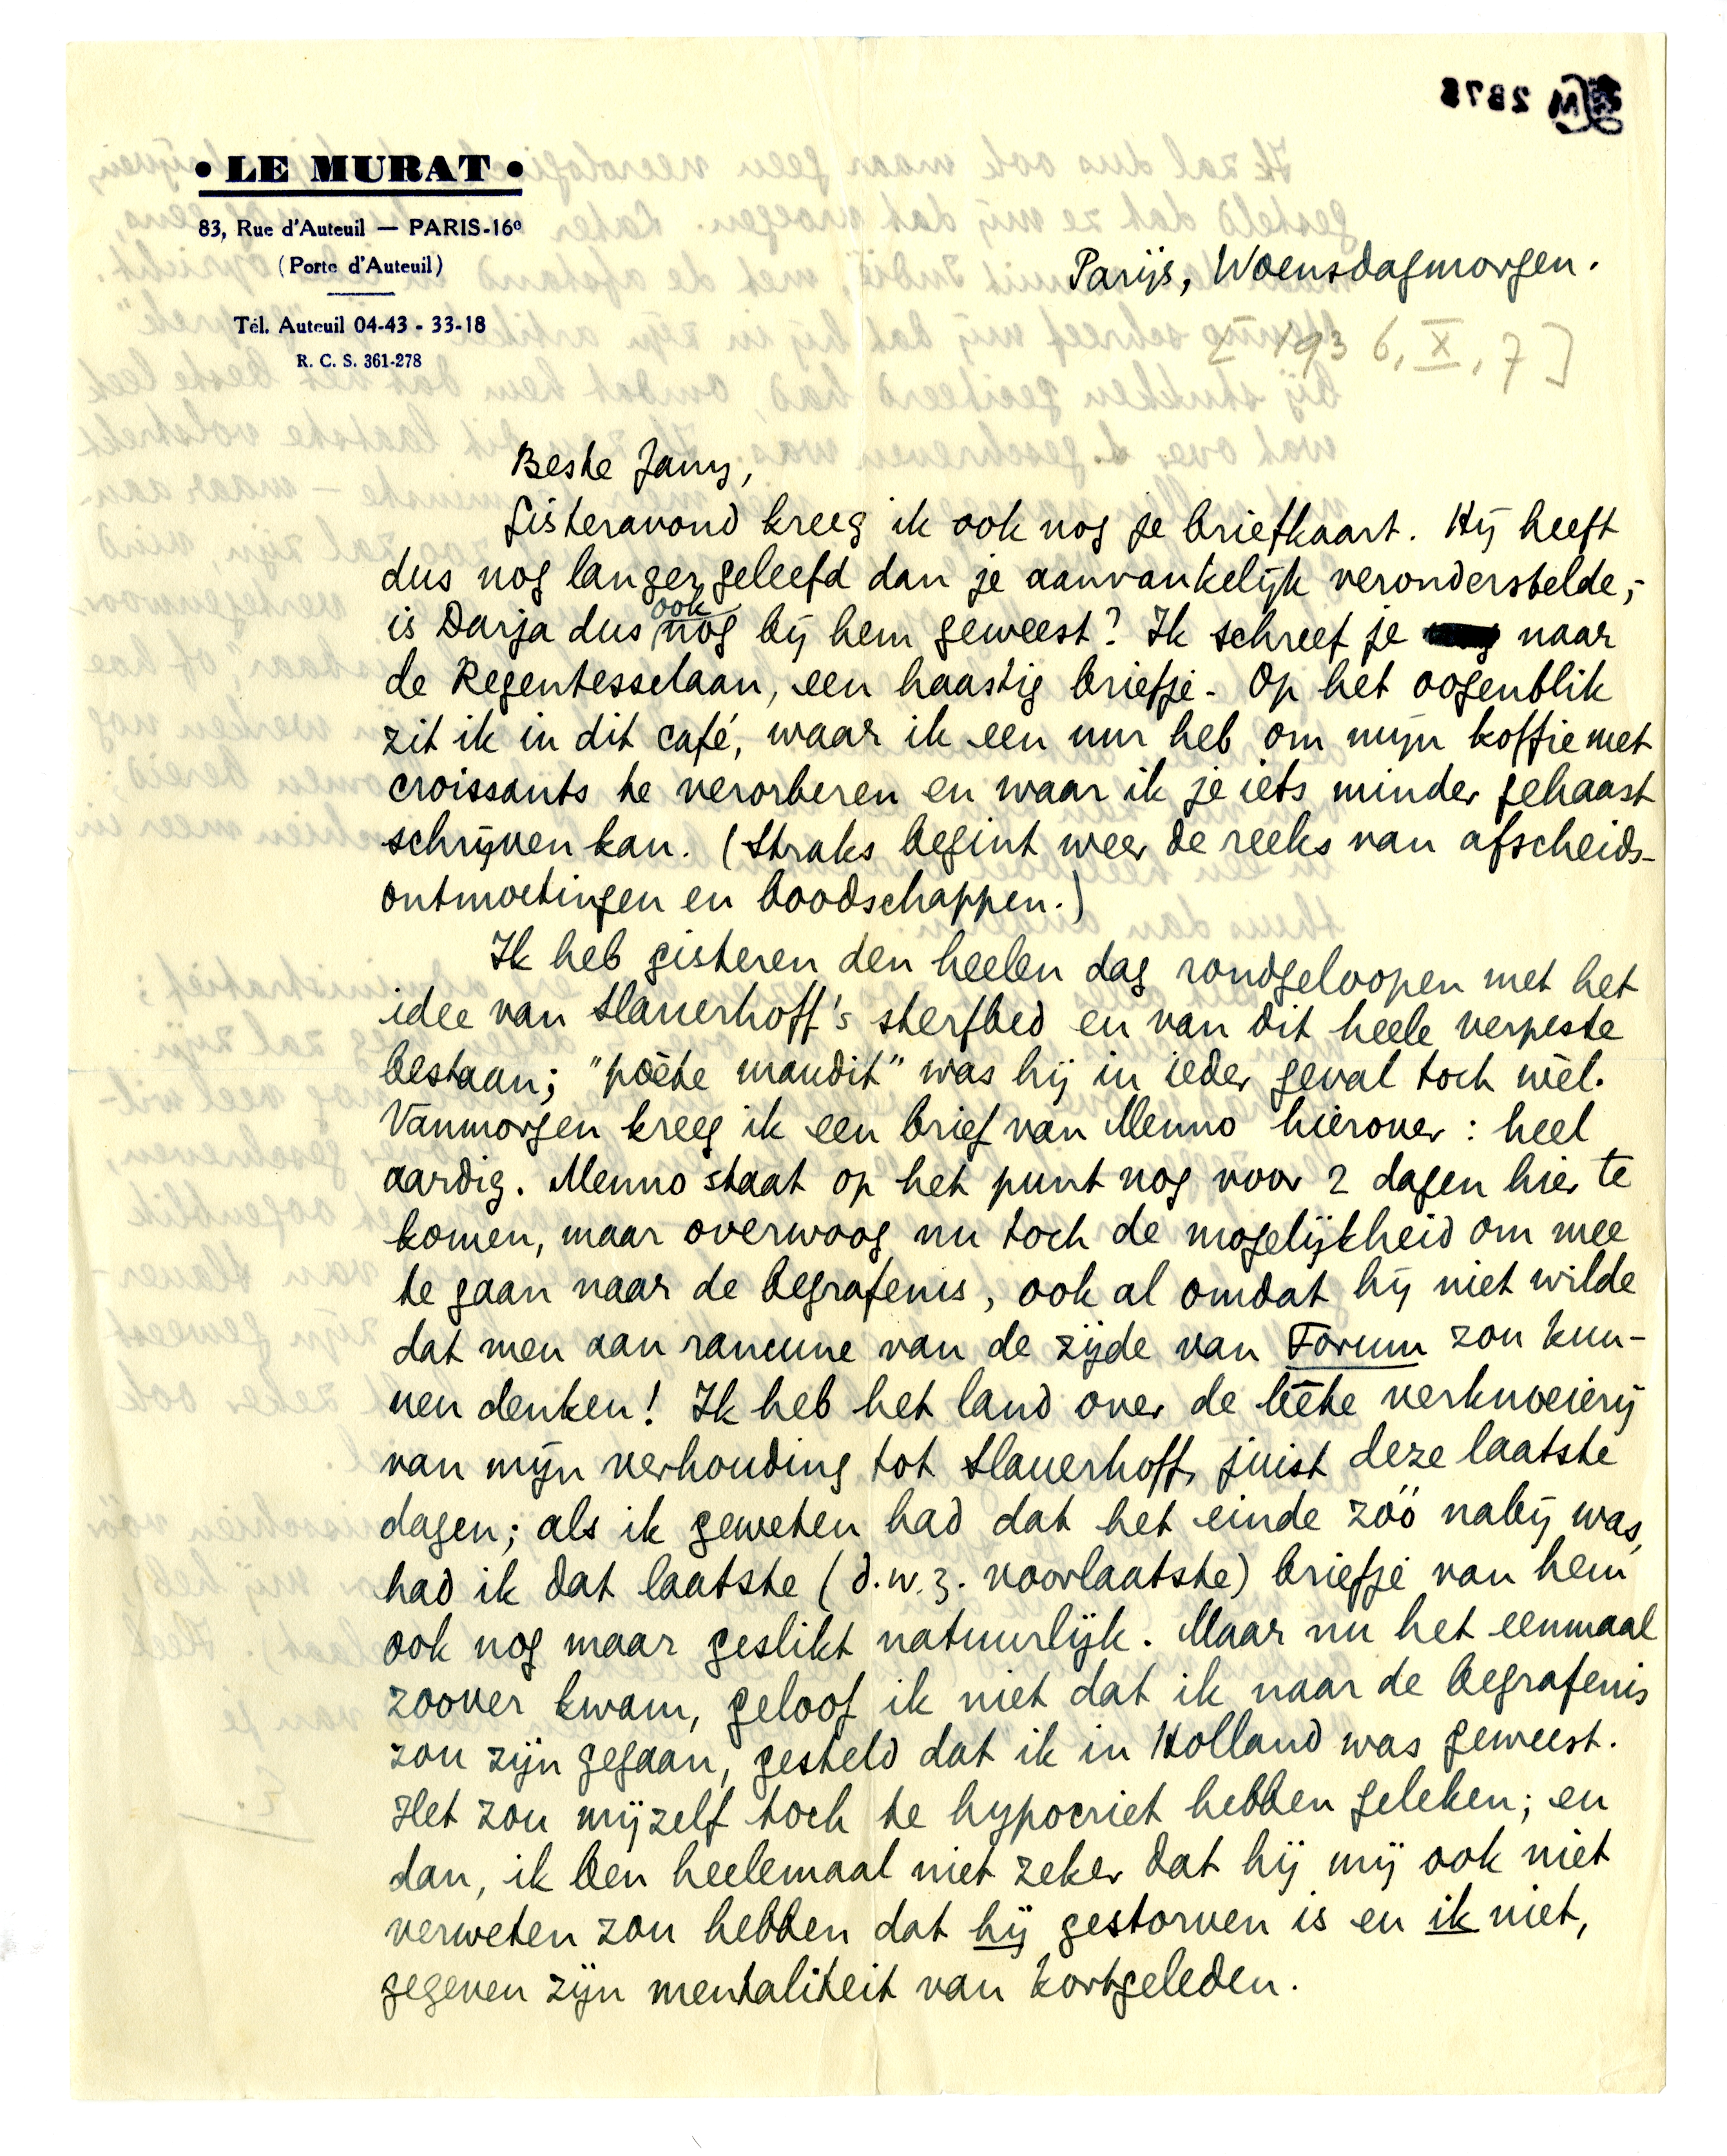 • LE MURAT •
83, Rue d'Auteuil — PARIS-16º
(Porte d'Auteuil)
Tél. Auteuil 04-43 - 33-18
R. C. S. 361-278
Parijs, Woensdagmorgen.
[1936, X, 7]
Beste Jany,
Gisteravond kreeg ik ook nog je briefkaart. Hij heeft
dus nog langer geleefd dan je aanvankelijk veronderstelde;-
is Darja dus ook nog bij hem geweest? Ik schreef je naar
de Regentesselaan, een haastig briefje. Op het oogenblik
zit ik in dit café, waar ik een uur heb om mijn koffie met
croissants te verorberen en waar ik je iets minder gehaast
schrijven kan. (Straks begint weer de reeks van afscheids-
ontmoetingen en boodschappen.)
Ik heb gisteren den heelen dag rondgeloopen met het
idee van Slauerhoff's sterfbed en van dit heele verpeste
bestaan; "poète maudit" was hij in ieder geval toch wèl.
Vanmorgen kreeg ik een brief van Menno hierover: heel
aardig. Menno staat op het punt nog voor 2 dagen hier te
komen, maar overwoog nu toch de mogelijkheid om mee
te gaan naar de begrafenis, ook al omdat hij niet wilde
dat men aan rancune van de zijde van Forum zou kun-
nen denken! Ik heb het land over de bête verknoeierij
van mijn verhouding tot Slauerhoff, juist deze laatste
dagen; als ik geweten had dat het einde zóó nabij was,
had ik dat laatste (d.w.z. voorlaatste) briefje van hem
ook nog maar geslikt natuurlijk. Maar nu het eenmaal
zoover kwam, geloof ik niet dat ik naar de begrafenis
zou zijn gegaan, gesteld dat ik in Holland was geweest.
Het zou mijzelf toch te hypocriet hebben geleken; en
dan, ik ben heelemaal niet zeker dat hij mij ook niet
verweten zou hebben dat hij gestorven is en ik niet,
gegeven zijn mentaliteit van kortgeleden.